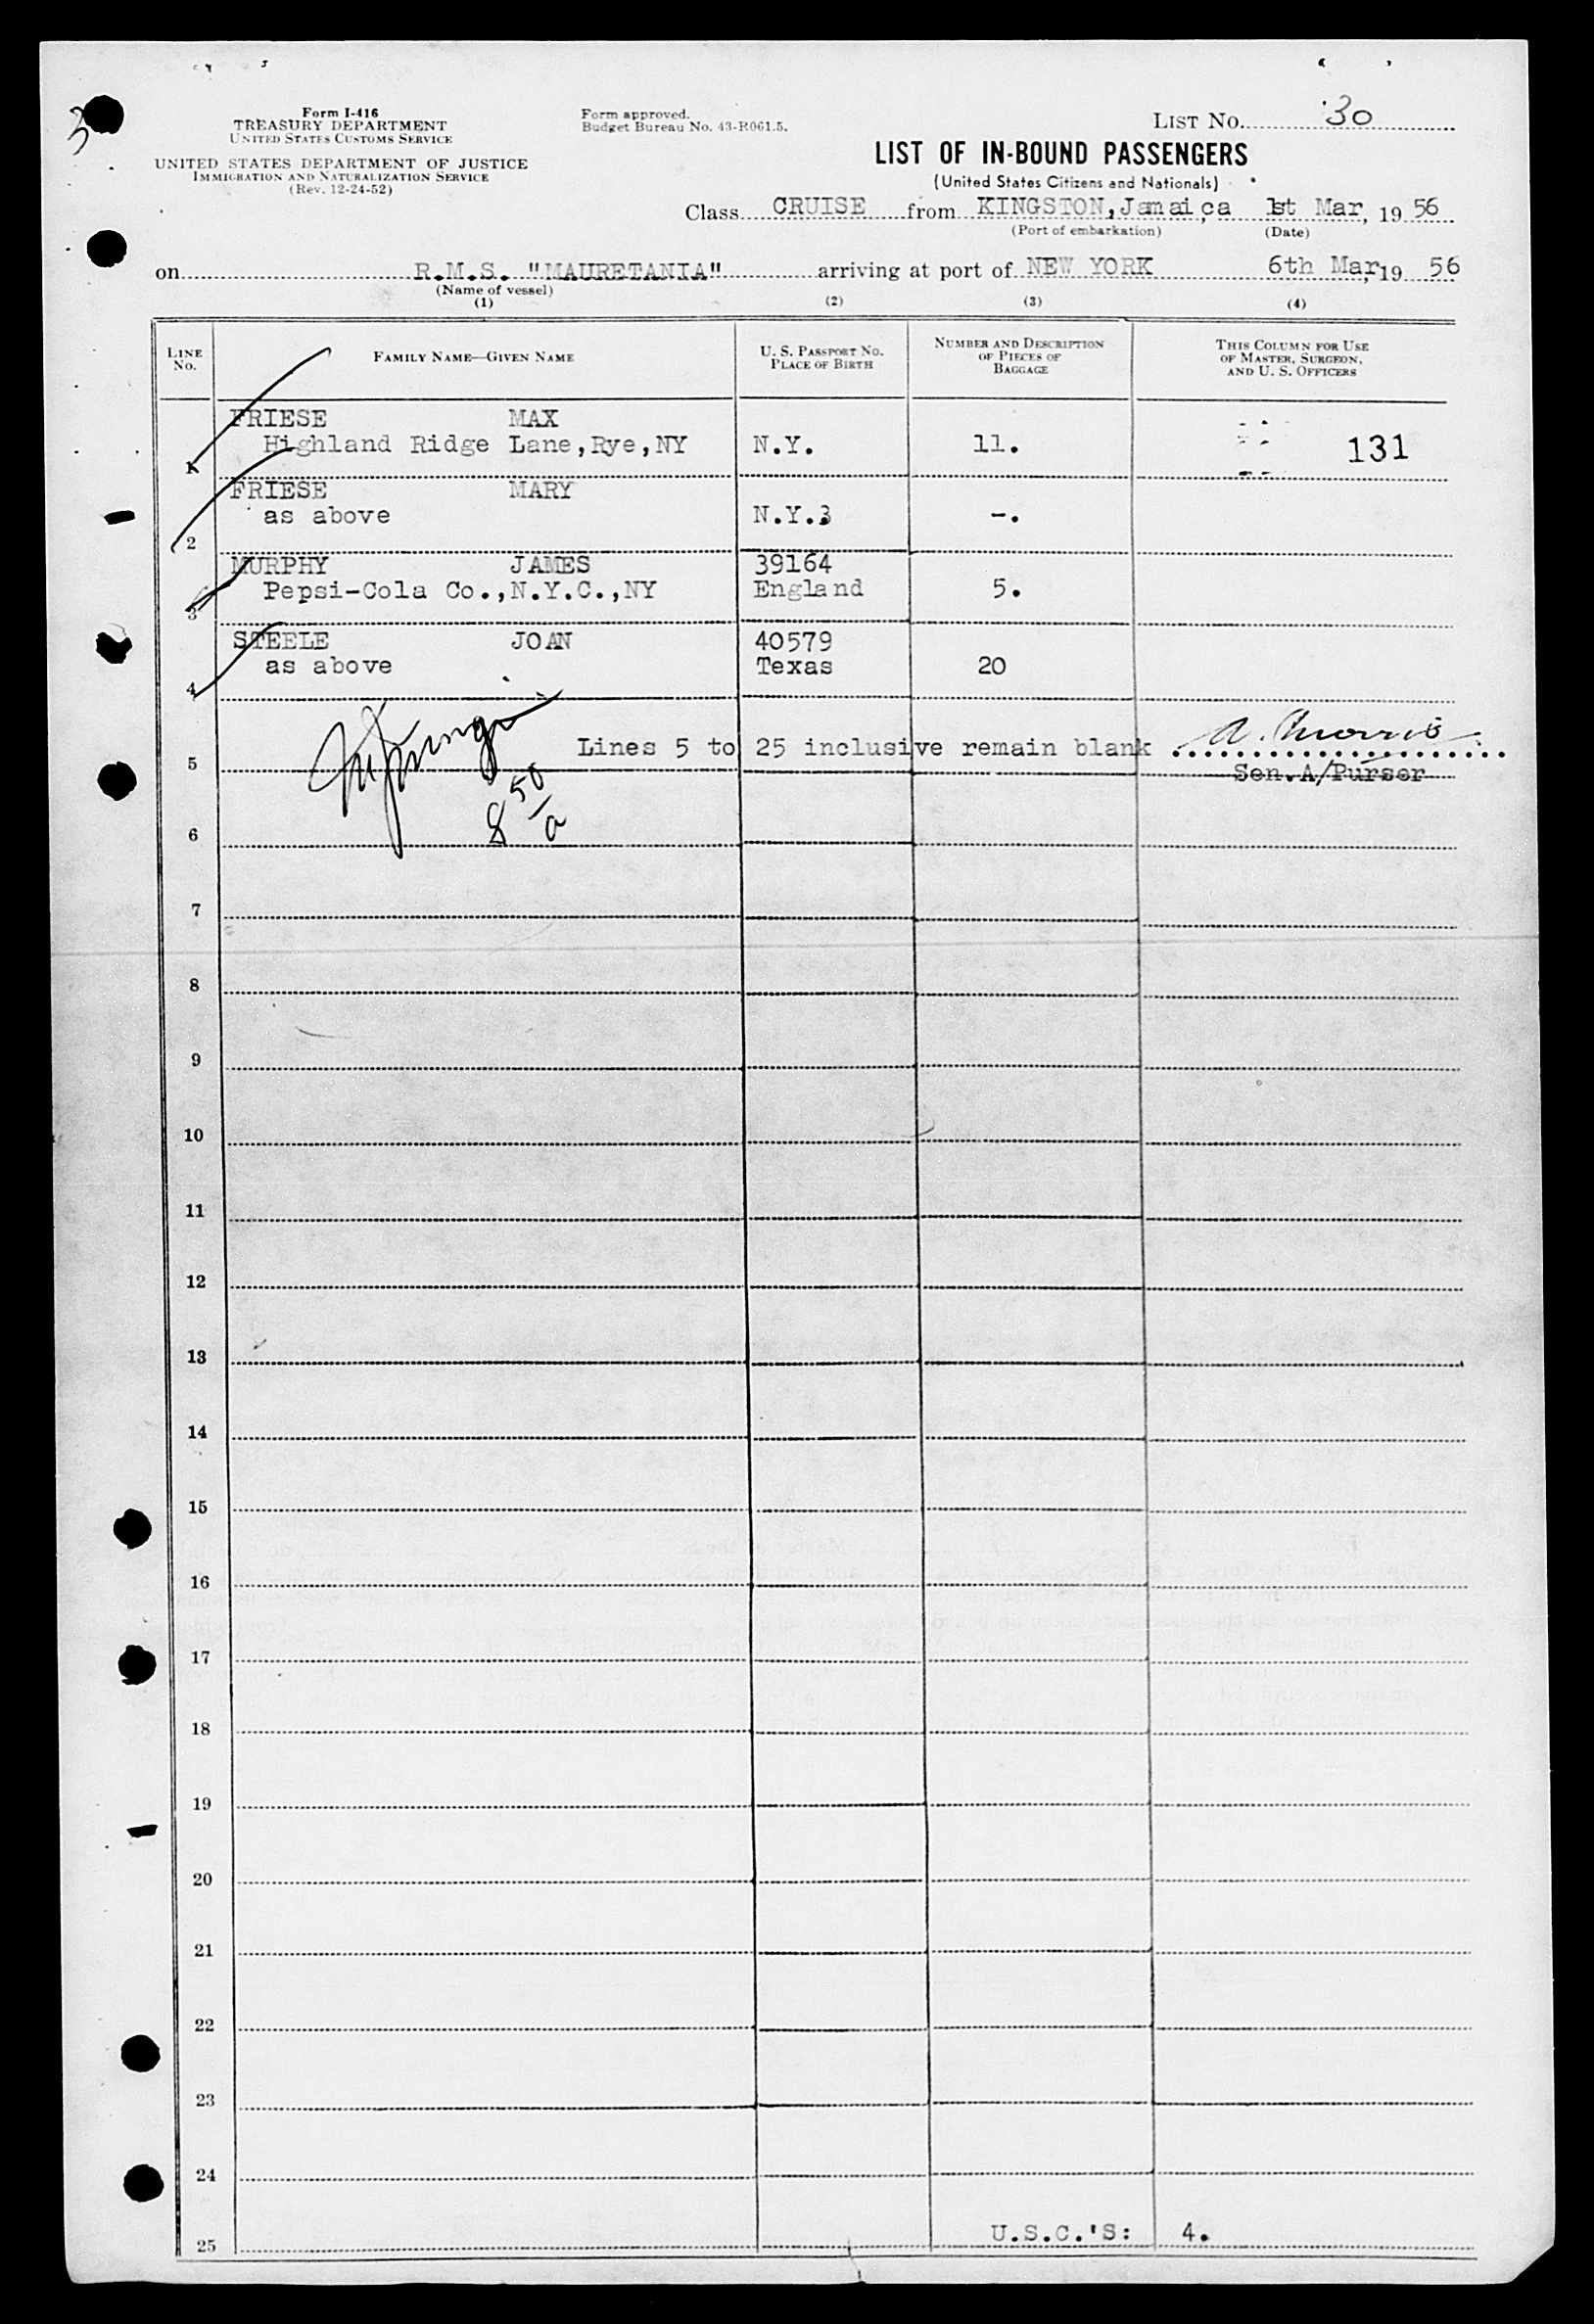 3
Form I-416
TREASURY DEPARTMENT
UNITED STATES CUSTOMS SERVICE
UNITED STATES DEPARTMENT OF JUSTICE
IMMIGRATION AND NATURALIZATION SERVICE
(Rev. 12-24-52)
Form approved.
Budget Bureau No. 43-R061.5.
LIST NO. 30
LIST OF IN-BOUND PASSENGERS
(United States Citizens and Nationals)
Class CRUISE from KINGSTON, Jamaica 1st Mar, 19 56
(Port of embarkation) (Date)
on R.M.S. "MAURETANIA" arriving at port of NEW YORK 6th Mar, 19 56
(Name of vessel)
(1) (2) (3) (4)
LINE NO. FAMILY NAME—GIVEN NAME U. S. PASSPORT NO. PLACE OF BIRTH NUMBER AND DESCRIPTION OF PIECES OF BAGGAGE THIS COLUMN FOR USE OF MASTER, SURGEON, AND U. S. OFFICERS
FRIESE MAX
1 Highland Ridge Lane,Rye,NY N.Y. 11. 131
FRIESE MARY
2 as above N.Y.3 -.
MURPHY JAMES 39164
3 Pepsi-Cola Co.,N.Y.C.,NY England 5.
STEELE JOAN 40579
4 as above Texas 20
5 Lines 5 to 25 inclusive remain blank A. Morris
Sen.A/Purser
8 50/a
6
7
8
9
10
11
12
13
14
15
16
17
18
19
20
21
22
23
24
25 U.S.C.'S: 4.